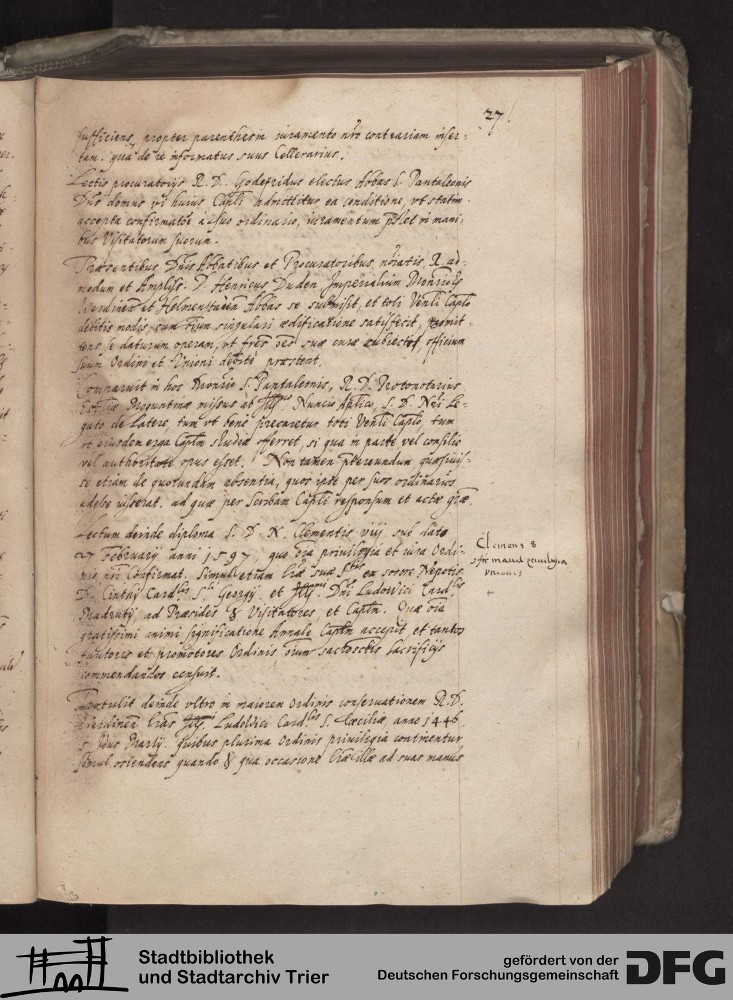 27
sufficiens, propter parenthesin iuramento nrõ contrariam inser-
tam. qua de re informatus suus Cellerarius.
Lectis procuratorijs R. D. Godefridus electus Abbas S. Pantaleonis
Dñs domus vt huius Capli admittitur ea conditione, vt statim
accepta confirmatoẽ a suo ordinario, iuramentum in mani-
bus Visitatorum suorum.
Præsentibus Dñis Abbatibus et Procuratoribus R. ad-
modum et Ampliss. D. Henricus Duden Imperialium
Werdinen et Helmenstaden Abbas se submisit, et toti Venli Caplo
debitis modis, cum singulari ædificatione satisfecit, promit-
tens se daturum operam, vt frẽs suæ curæ subiecti, officium
suum Ordini et Unioni debitè præstent.
Comparuit in hoc S. Pantaleonis, R. D. Protonotarius
Ecclĩæ Moguntinæ missus ab Nuncio Aplico, S. D. Nrĩ Le-
gato de Latere, tum vt benè precaretur toti Venli Caplo, tum
vt eiusdem erga Caplm studia offerret, si qua in parte vel consilio
vel authoritate opus esset. Non tamen
se etiam de quorundam absentia, quos ipse per suos ordinarios
adesse iusserat. ad quæ per Scribam Capli responsum et actæ græ.
Lectum deinde diploma S. D. N. Clementis viij sub dato
27 Februarij anni 1597, quo oĩa priuilegia et iura Ordi-
nis nrĩ Confirmat. Simul etiam lræ suæ ex sorore Nepotis
D. Cinthij Cardlis Sti Georgij, et Dñi Ludouici Cardlis
Madrutij ad Præsides & Visitatores, et Caplm. Quæ oĩa
gratissimi animi significatione Annale Caplm accepit et tantos
fautores et promotores Ordinis sacrificijs
commendandos censuit.
Protulit deinde vltro in maiorem ordinis conseruationem R. D.
Werdinen lrãs Ludouici Cardlis S. Cæciliæ, anno 1446
5 Idus Martij. quibus plurima Ordinis priuilegia continentur
simul ostendens quando & qua occasione lræ illæ ad suas manus
Clemens 8
priuilegia
vnionis
+
Stadtbibliothek
und Stadtarchiv Trier
gefördert von der
Deutschen Forschungsgemeinschaft
DFG